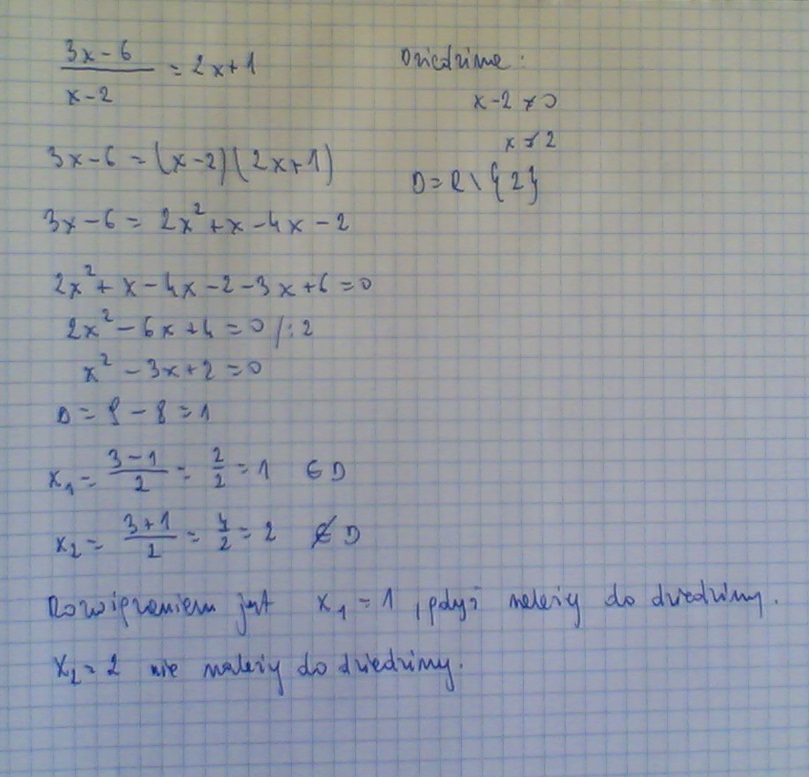 3x-6 / x-2 = 2x+1
Dziedzina:
x-2 ≠ 0
x ≠ 2
D = R \ {2}
3x-6 = (x-2)(2x+1)
3x-6 = 2x²+x-4x-2
2x²+x-4x-2-3x+6=0
2x²-6x+4=0 /:2
x²-3x+2=0
Δ = 9-8=1
x₁ = 3-1 / 2 = 2/2 = 1 ∈ D
x₂ = 3+1 / 2 = 4/2 = 2 ∉ D
Rozwiązaniem jest x₁ = 1, gdyż należy do dziedziny.
x₂ = 2 nie należy do dziedziny.